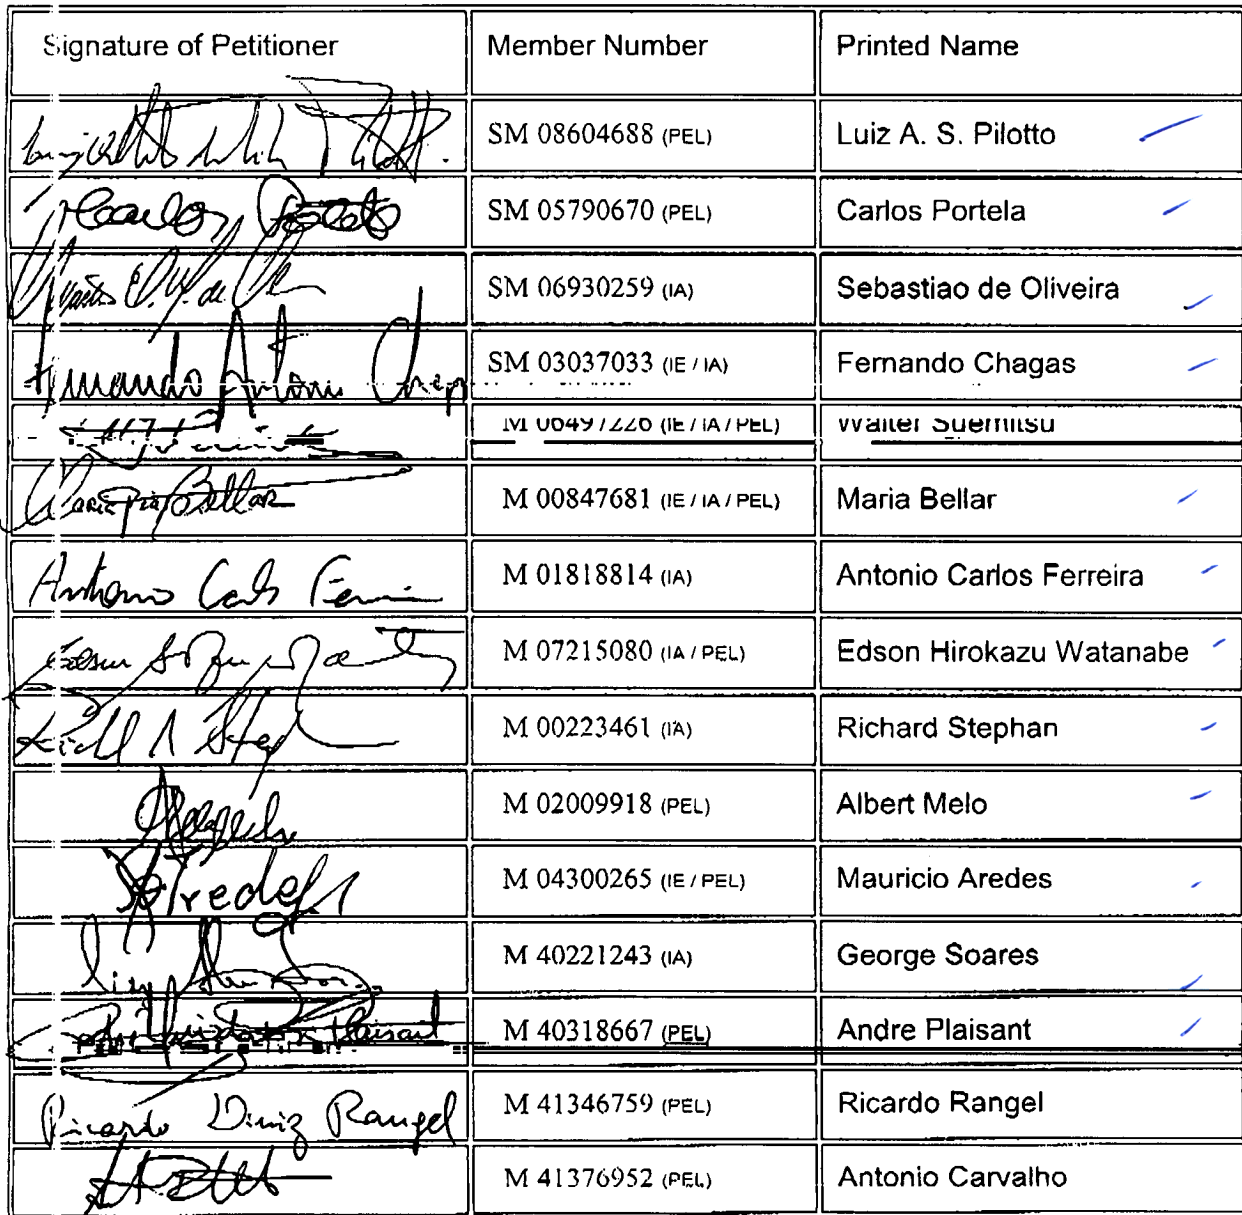 Signature of Petitioner Member Number Printed Name
SM 08604688 (PEL) Luiz A. S. Pilotto
Carlos Portela SM 05790670 (PEL) Carlos Portela
SM 06930259 (IA) Sebastiao de Oliveira
Fernando Antonio Chagas SM 03037033 (IE / IA) Fernando Chagas
M 06497226 (IE / IA / PEL) Walter Suemitsu
Maria Pia Bellar M 00847681 (IE / IA / PEL) Maria Bellar
Antonio Carlos Ferreira M 01818814 (IA) Antonio Carlos Ferreira
M 07215080 (IA / PEL) Edson Hirokazu Watanabe
Richard M 00223461 (IA) Richard Stephan
M 02009918 (PEL) Albert Melo
Aredes M 04300265 (IE / PEL) Mauricio Aredes
M 40221243 (IA) George Soares
Plaisant M 40318667 (PEL) Andre Plaisant
Ricardo Diniz Rangel M 41346759 (PEL) Ricardo Rangel
M 41376952 (PEL) Antonio Carvalho